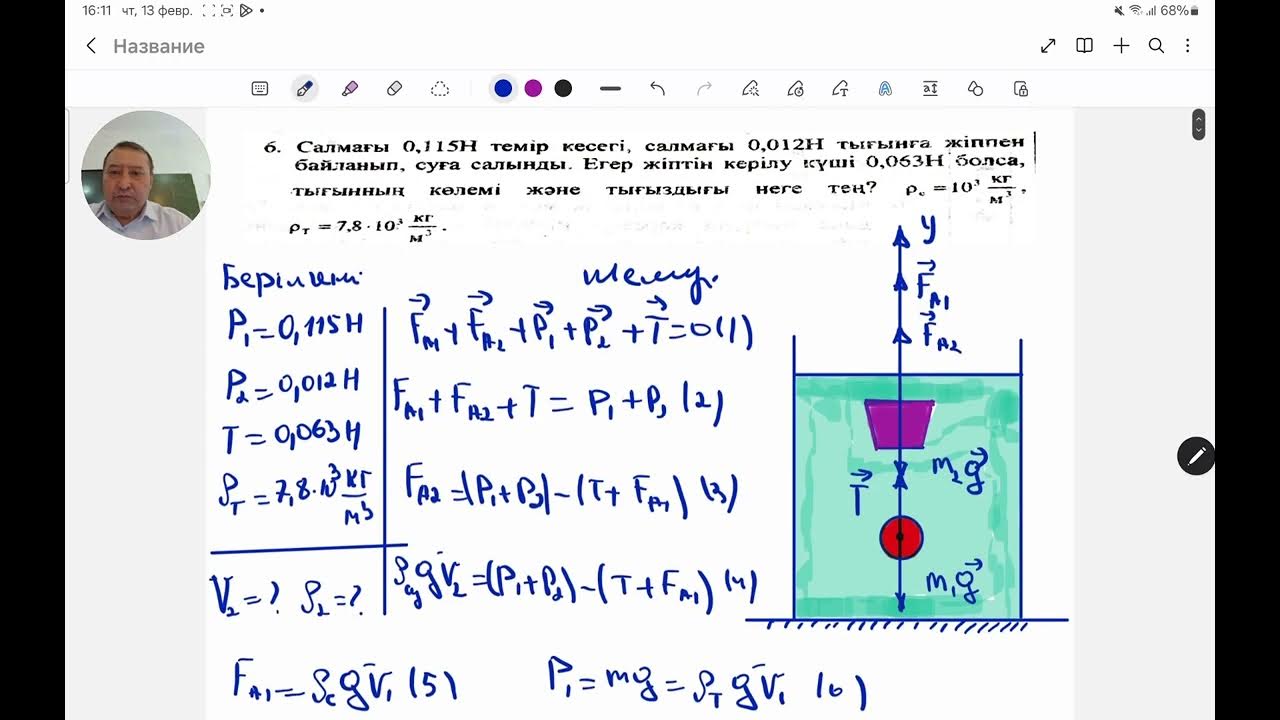 16:11 чт, 13 февр. 68%
Название
6. Салмағы 0,115Н темір кесегі, салмағы 0,012Н тығынға жіппен
байланып, суға салынды. Егер жіптің керілу күші 0,063Н болса,
тығынның көлемі және тығыздығы неге тең? ρс = 10³ кг/м³,
ρт = 7,8 · 10³ кг/м³.
Берілгені: Шешуі.
P₁ = 0,115Н
P₂ = 0,012Н
T = 0,063Н
ρт = 7,8·10³ кг/м³
V₂ = ? ρ₂ = ?
F⃗A1 + F⃗A2 + P⃗₁ + P⃗₂ + T⃗ = 0 (1)
FA1 + FA2 + T = P₁ + P₂ (2)
FA2 = (P₁ + P₂) − (T + FA1) (3)
ρсу gV₂ = (P₁ + P₂) − (T + FA1) (4)
FA1 = ρс gV₁ (5) P₁ = mg = ρт gV₁ (6)
y
F⃗A1
F⃗A2
m₂g⃗
T⃗
m₁g⃗